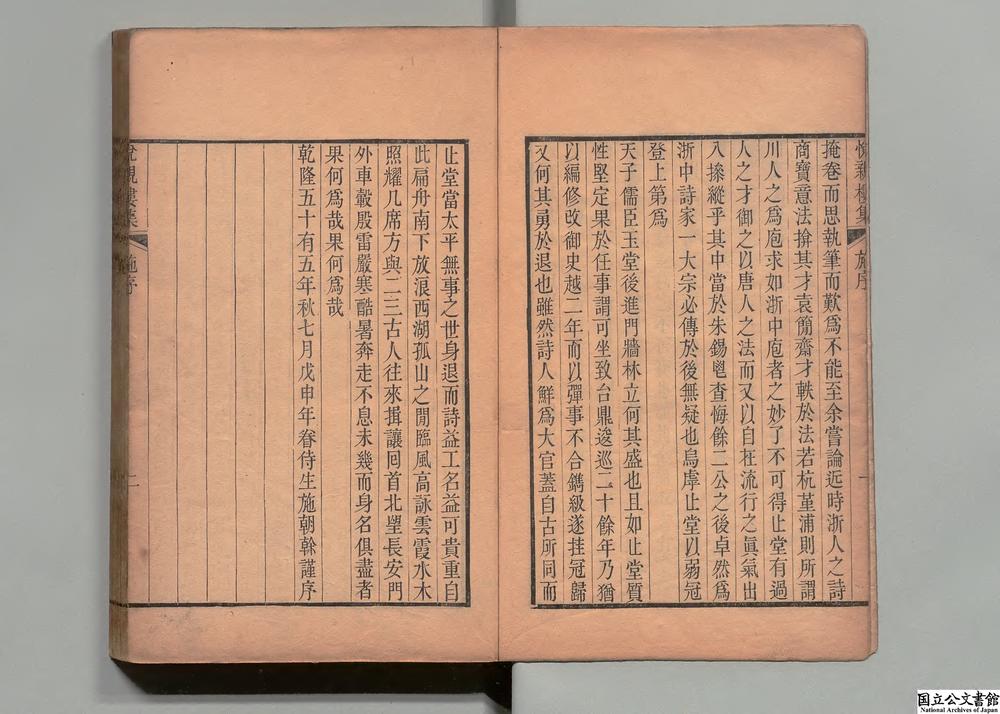 悅親樓集 施序 一
掩卷而思執筆而歎爲不能至余嘗論近時浙人之詩
商寶意法揜其才袁簡齋才軼於法若杭堇浦則所謂
川人之爲庖求如浙中庖者之妙了不可得止堂有過
人之才御之以唐人之法而又以自在流行之眞氣出
入搡縱乎其中當於朱錫鬯查悔餘二公之後卓然爲
浙中詩家一大宗必傳於後無疑也烏虖止堂以弱冠
登上第爲
天子儒臣玉堂後進門牆林立何其盛也且如止堂質
性堅定果於任事謂可坐致台鼎逡巡二十餘年乃猶
以編修改御史越二年而以彈事不合鐫級遂挂冠歸
又何其勇於退也雖然詩人鮮爲大官蓋自古所同而
止堂當太平無事之世身退而詩益工名益可貴重自
此扁舟南下放浪西湖孤山之閒臨風高詠雲霞水木
照耀几席方與二三古人往來揖讓回首北望長安門
外車轂殷雷嚴寒酷暑奔走不息未幾而身名俱盡者
果何爲哉果何爲哉
乾隆五十有五年秋七月戊申年眷侍生施朝榦謹序
悅親樓集 施序 二
国立公文書館
National Archives of Japan